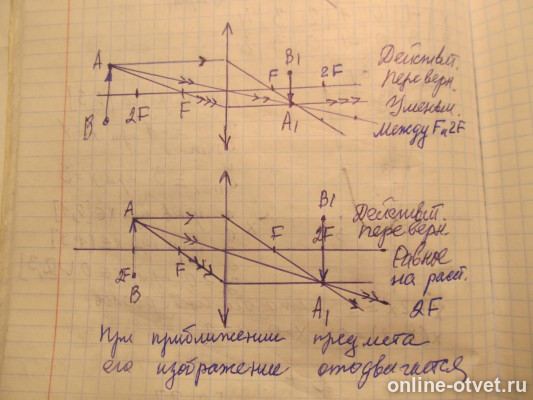 A
B
2F
F
F
B1
2F
A1
Действит.
Переверн.
Уменьш.
Между F и 2F
A
B
2F
F
F
B1
2F
A1
Действит.
переверн.
Равное
на расст.
2F
При приближении предмета
его изображение отодвигается
online-otvet.ru